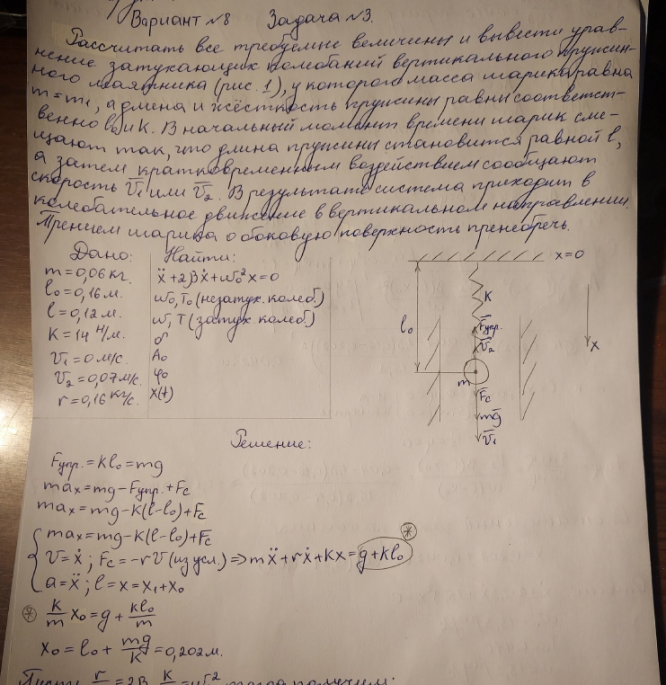 Вариант №8 Задача №3.
Рассчитать все требуемые величины и вывести урав-
нение затухающих колебаний вертикального пружин-
ного маятника (рис. 1), у которого масса шарика равна
m = m₁, а длина и жёсткость пружины равны соответст-
венно l₀ и K. В начальный момент времени шарик сме-
щают так, что длина пружины становится равной l,
а затем кратковременным воздействием сообщают
скорость V̄₁ или V̄₂. В результате система приходит в
колебательное движение в вертикальном направлении.
Трением шарика о боковую поверхность пренебречь.
Дано:
m = 0,06 кг.
l₀ = 0,16 м.
l = 0,12 м.
K = 14 Н/м.
V₁ = 0 м/с.
V₂ = 0,07 м/с.
r = 0,16 кг/с.
Найти:
ẍ + 2βẋ + ω₀²x = 0
ω₀, T₀ (незатух. колеб.)
ω, T (затух. колеб.)
σ
A₀
φ₀
x(t)
x = 0
K
l₀
Fупр.
V̄₂
m
F̄c
mḡ
V̄₁
x
Решение:
Fупр. = kl₀ = mg
maₓ = mg - Fупр. + Fc
maₓ = mg - K(l - l₀) + Fc
maₓ = mg - K(l - l₀) + Fc
V = ẋ; Fc = -rV (из усл.) ⇒ mẍ + rẋ + Kx = g + kl₀ *
a = ẍ; l = x = x₁ + x₀
* K/m x₀ = g + kl₀/m
x₀ = l₀ + mg/K = 0,202 м.
r = 2β K